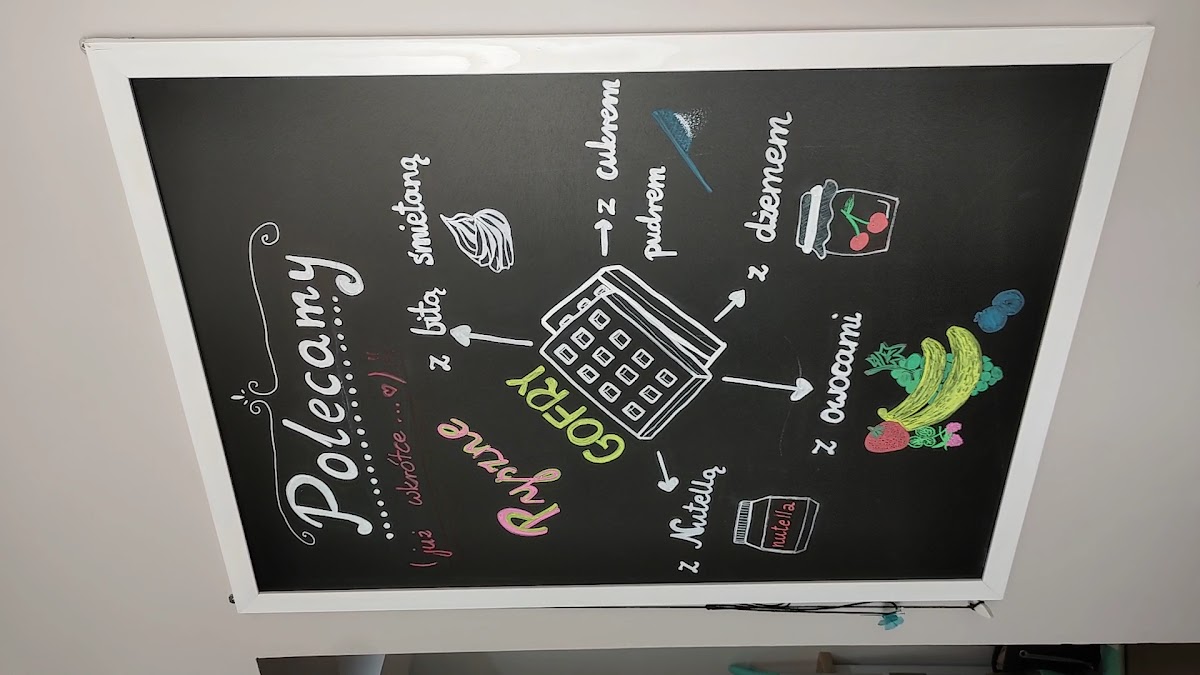 Polecamy
(już wkrótce...♡)!!!
Pyszne
GOFRY
z bitą śmietaną
z cukrem
pudrem
z dżemem
z owocami
z Nutellą
nutella